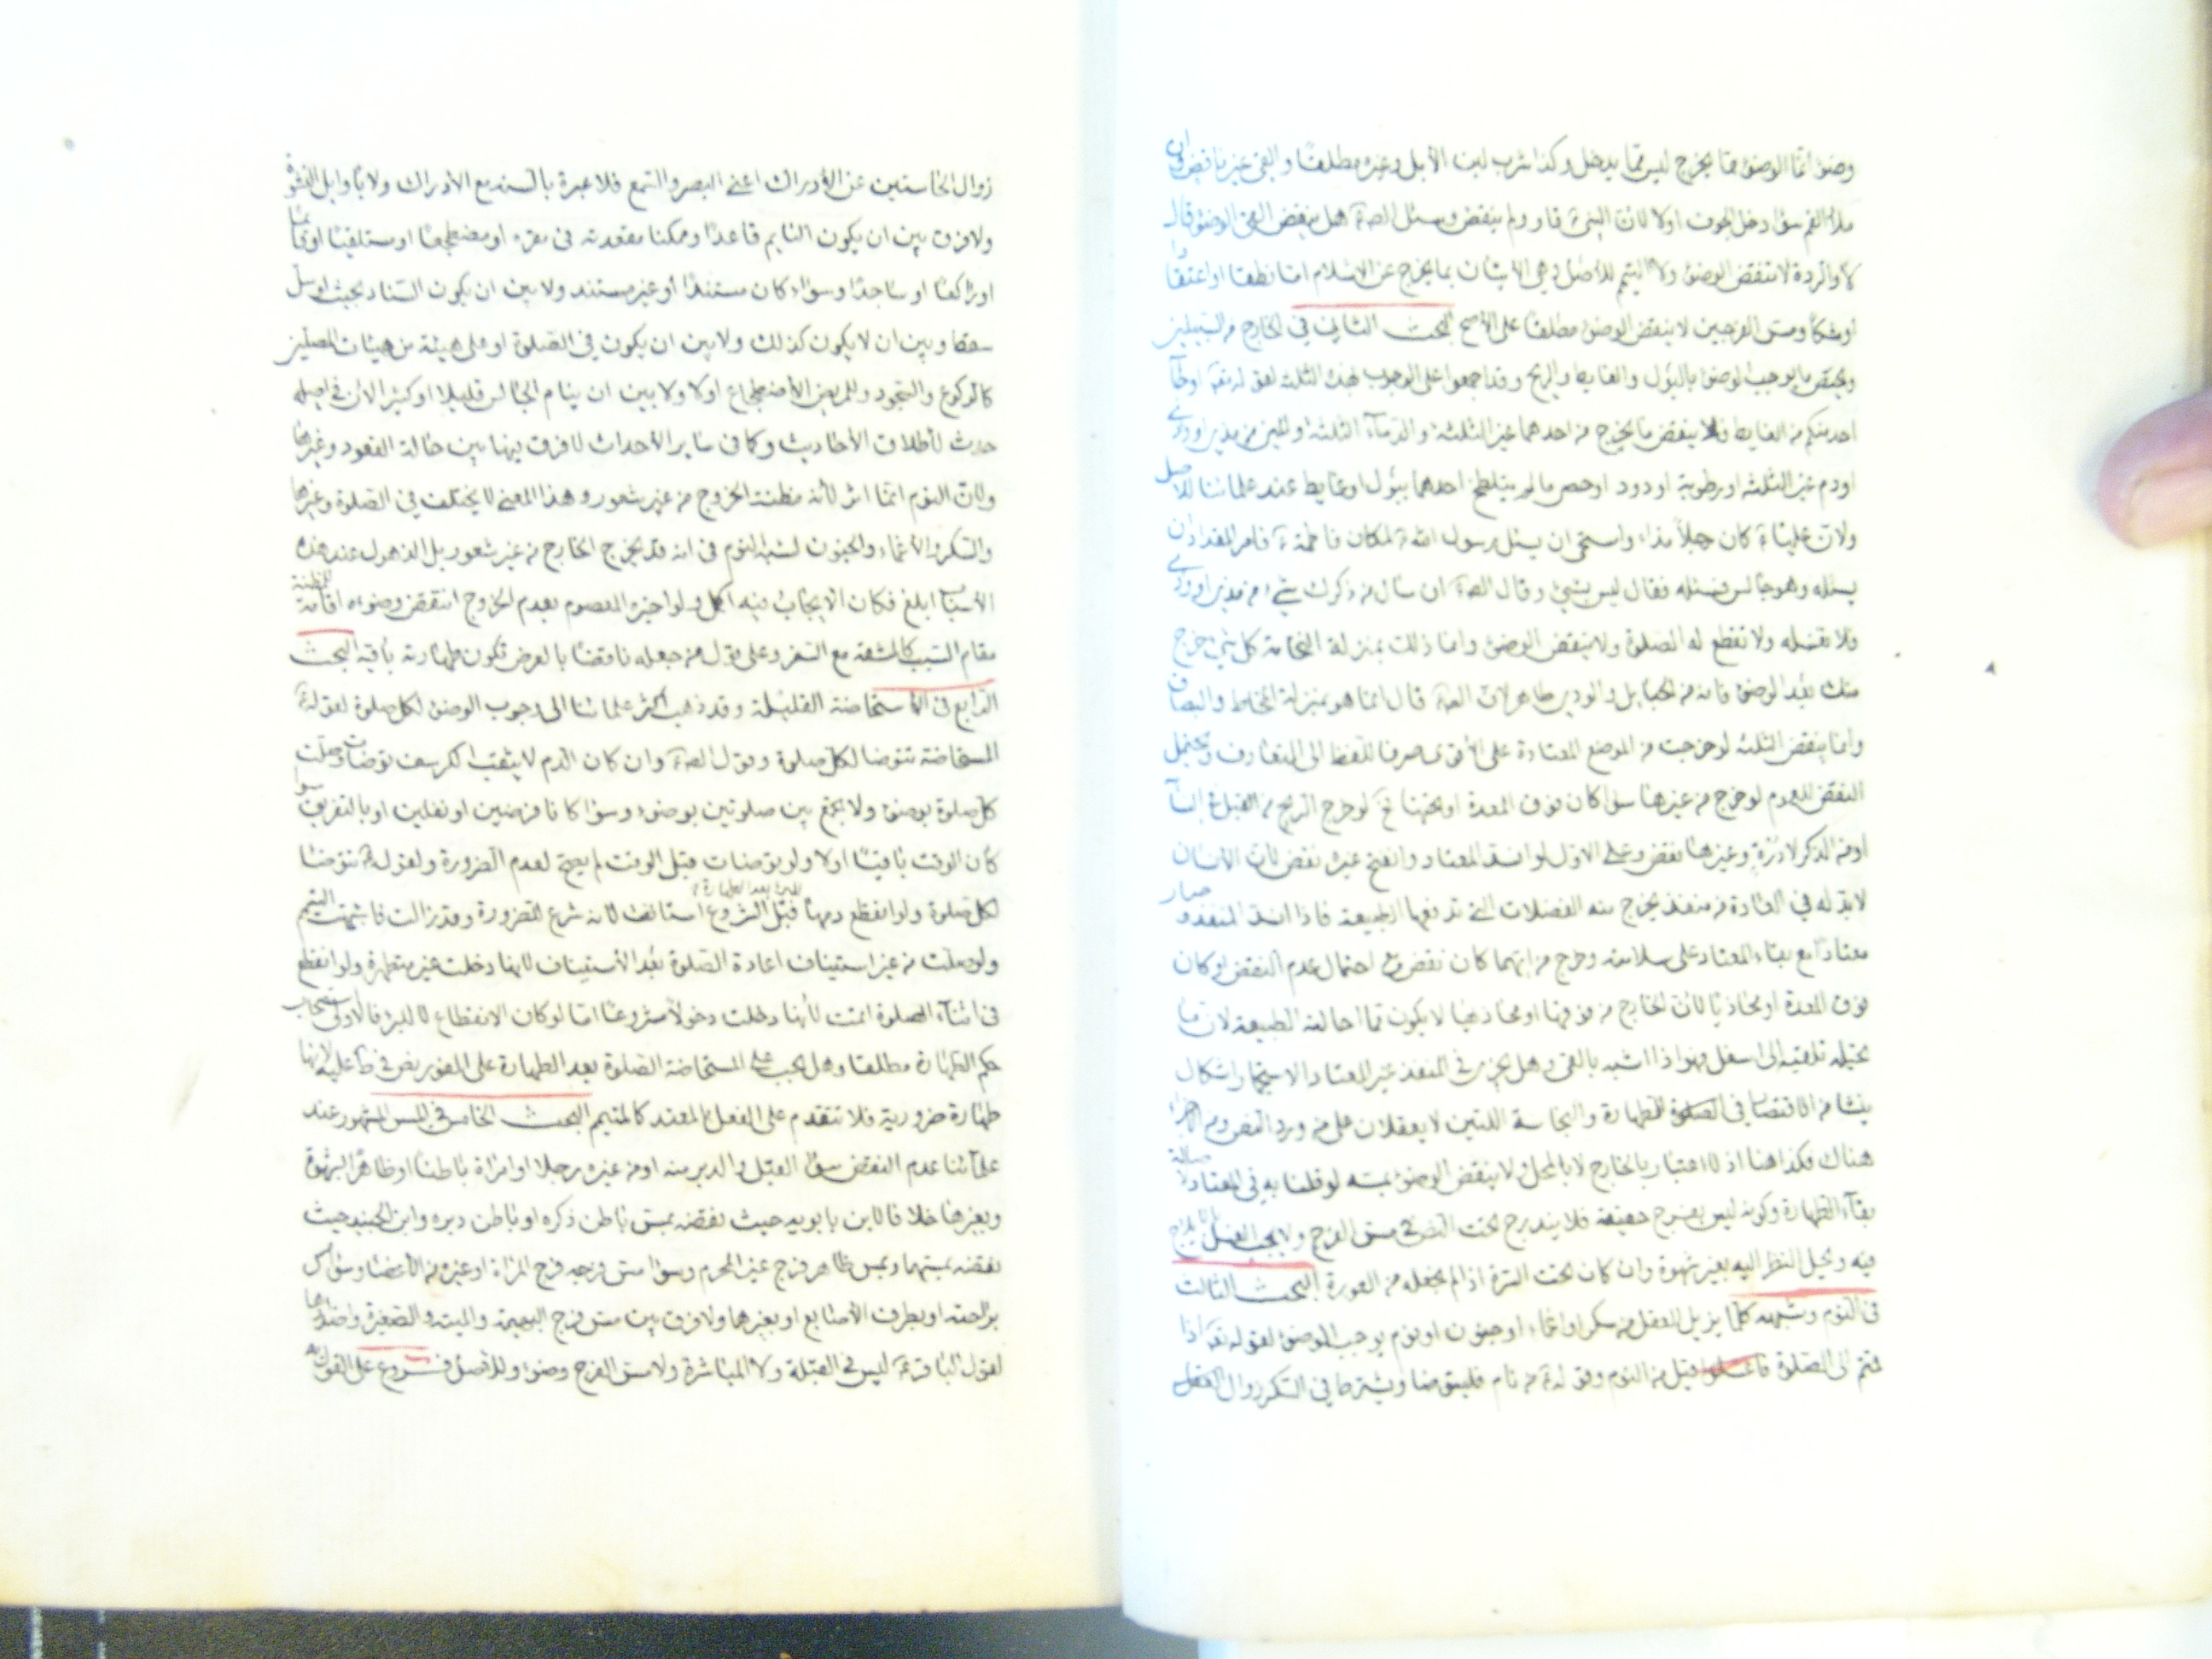 وضوء انما الوضوء مما يخرج ليس مما يدخل وكذا شرب لبن الأبل وغيره مطلقا والقى غير ناقض وان
ملاء الفم سواء دخل الجوف اولا لان النبى ع قاء ولم ينقض وسئل الص ع هل ينقض القى الوضوء قال
لا والردة لا تنقض الوضوء ولا التيمم للأصل وهى الأتيان بما يخرج عن الاسلام اما نطقا او اعتقادا
او شكا ومس الفرجين لا ينقض الوضوء مطلقا على الأصح البحث الثانى فى الخارج من السبيلين
ويختص ما يوجب الوضوء بالبول والغايط والريح وقد اجمعوا على الوجوب بهذه الثلثة لقوله تع اوجاء
احد منكم من الغايط فلا ينقض ما يخرج من احدهما غير الثلثة والدماء الثلثة والمنى من مذى او ودى
اودم غير الثلثة او رطوبة او دود او حصى ما لم يتلطخ احدهما ببول او غايط عند علمائنا للاصل
ولان عليا ع كان رجلا مذاء واستحى ان يسئل رسول الله ص لمكان فاطمة ع فامر المقداد ان
يسئله وهو جالس فسئله فقال ليس بشئ وقال الص ع ان سال من ذكرك شئ من مذى او ودى
فلا تغسله ولا تقطع له الصلوة ولا ينقض الوضوء وانما ذلك بمنزلة النخامة كل شئ خرج
منك بعد الوضوء فانه من الحبايل والودى طاهر لان الص ع قال انما هو بمنزلة المخاط والبصاق
وانما ينقض الثلثة لو خرجت من الموضع المعتادة على الأقوى صرفا للفظ الى المتعارف ويحتمل
النقض للعموم لو خرج من غيرها سواء كان فوق المعدة او تحتها نعم لو خرج الريح من القبل فى النساء
او من الذكر لادرة وغيرها نقض وعلى الاول لو انسد المعتاد وانفتح غيره نقض لان الانسان
لابد له فى العادة من منفذ يخرج منه الفضلات التى تدفعها الطبيعة فاذا انسد المنفذ وصار
معتادا مع بقاء المعتاد على سلامته وخرج من ايهما كان نقض وفى احتمال عدم النقض لو كان
فوق المعدة او محاذيا لان الخارج من فوقها او محاذيها لا يكون مما احالته الطبيعة لان ما
تحيله تلقيه الى اسفل فهو اذا اشبه بالقى وهل يجزى فى المنفذ غير المعتاد الاستجمار اشكال
ينشا من الاقتصار فى الطهارة والنجاسة اللتين لا يعقلان على مورد النص ومن الاجزاء
هناك فكذا هنا اذ لا اعتبار بالخارج لا بالمحل ولا ينقض الوضوء بمسه لو قلنا به فى المعتاد لاصالة
بقاء الطهارة وكونه ليس بفرج حقيقة فلا يندرج تحت النص فى مس الفرج ولا يجب الغسل بالايلاج
فيه ويحل النظر اليه بغير شهوة وان كان تحت السرة اذا لم نجعله من العورة البحث الثالث
فى النوم وشبهه كلما يزيل العقل من سكر او اغماء او جنون او نوم يوجب الوضوء لقوله تع اذا
قمتم الى الصلوة فاغسلوا قيل من النوم وقوله ع من نام فليتوضا ويشترط فى السكر زوال العقل
زوال الحاستين عن الأدراك اعنى البصر والسمع فلا عبرة بالسنة مع الادراك ولا باوايل النشوة
ولا فرق بين ان يكون النايم قاعدا وممكنا مقعدته فى مقره او مضطجعا او مستلقيا او قائما
او راكعا او ساجدا وسواء كان مستندا او غير مستند ولا بين ان يكون السناد بحيث لو سل
سقط وبين ان لا يكون كذلك ولا بين ان يكون فى الصلوة او على هيئة من هيئات المصلين
كالركوع والسجود وللمريض الأضطجاع اولا ولا بين ان ينام الجالس قليلا او كثيرا لانه فى اصله
حدث لأطلاق الأحاديث وكما فى ساير الأحداث لا فرق فيها بين حالة القعود وغيرها
ولان النوم انما اثر لأنه مظنة الخروج من غير شعور وهذا المعنى لا يختلف فى الصلوة وغيرها
والسكر والاغماء والجنون لشبه النوم فى انه قد يخرج الخارج من غير شعور بل الذهول عند هذه
الأسباب ابلغ فكان الايجاب فيه اكمل ولو اخبره المعصوم بعدم الخروج انتقض وضوءه اقامة للمظنة
مقام السبب كالمشقة مع السفر وعلى قول من جعله ناقضا بالعرض تكون طهارته باقية البحث
الرابع فى الاستحاضة القليلة وقد ذهب اكثر علمائنا الى وجوب الوضوء لكل صلوة لقوله ع
المستحاضة تتوضا لكل صلوة وقول الص ع وان كان الدم لا يثقب الكرسف توضات وصلت
كل صلوة بوضوء ولا تجمع بين صلوتين بوضوء وسواء كانا فرضين او نفلين او بالتفريق سواء
كان الوقت باقيا اولا ولو توضات قبل الوقت لم يصح لعدم الضرورة ولقوله ع تتوضا
لكل صلوة ولو انقطع دمها للبرء بعد الطهارة قبل الشروع استانفت لانه شرع للضرورة وقد زالت فاشبهت التيمم
ولو صلت من غير استيناف اعادة الصلوة بعد الأستيناف لانها دخلت غير متطهرة ولو انقطع
فى اثناء الصلوة اتمت لأنها دخلت دخولا مشروعا اما لو كان الانقطاع لا للبرء فالاولى استصحاب
حكم الطهارة مطلقا وهل يجب على المستحاضة الصلوة بعد الطهارة على الفور نص فى ط عليه لانها
طهارة ضرورية فلا تتقدم على الفعل المعتد كالمتيمم البحث الخامس فى اللمس المشهور عند
علمائنا عدم النقض سواء القبل والدبر منه او من غيره رجلا او امراة باطنا او ظاهرا لشهوة
وبغيرها خلافا لابن بابويه حيث نقضه بمس باطن ذكره او باطن دبره وابن الجنيد حيث
نقضه بمسهما وبمس ظاهر فرج غير المحرم وسواء مس فرجه فرج المراة او غيره من الأعضاء وسواء مس
براحته او بطرف الأصابع او بغيرهما ولا فرق بين مس فرج البهيمة والميت والصغيرة واضدادها
لقول الباقر ع ليس فى القبلة ولا المباشرة ولا مس الفرج وضوء وللأصل فروع على القول به